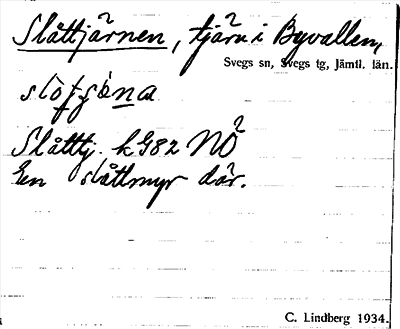 Slåttjärnen, tjärn i Byvallen,
Svegs sn, Svegs tg, Jämtl. län.
Slåttj. kG82 NÖ
En slåttmyr där.
C. Lindberg 1934.